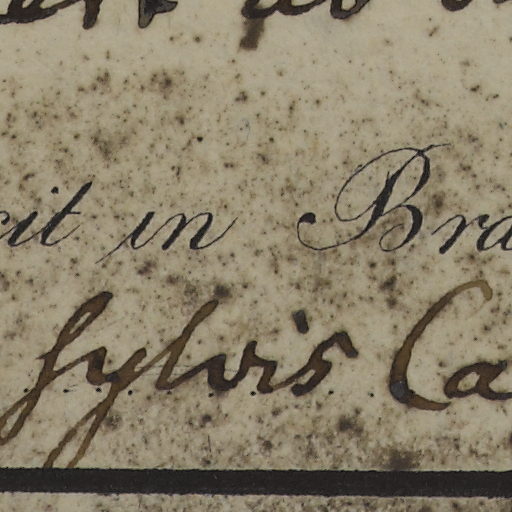 cit in Bra
sylvis Ca